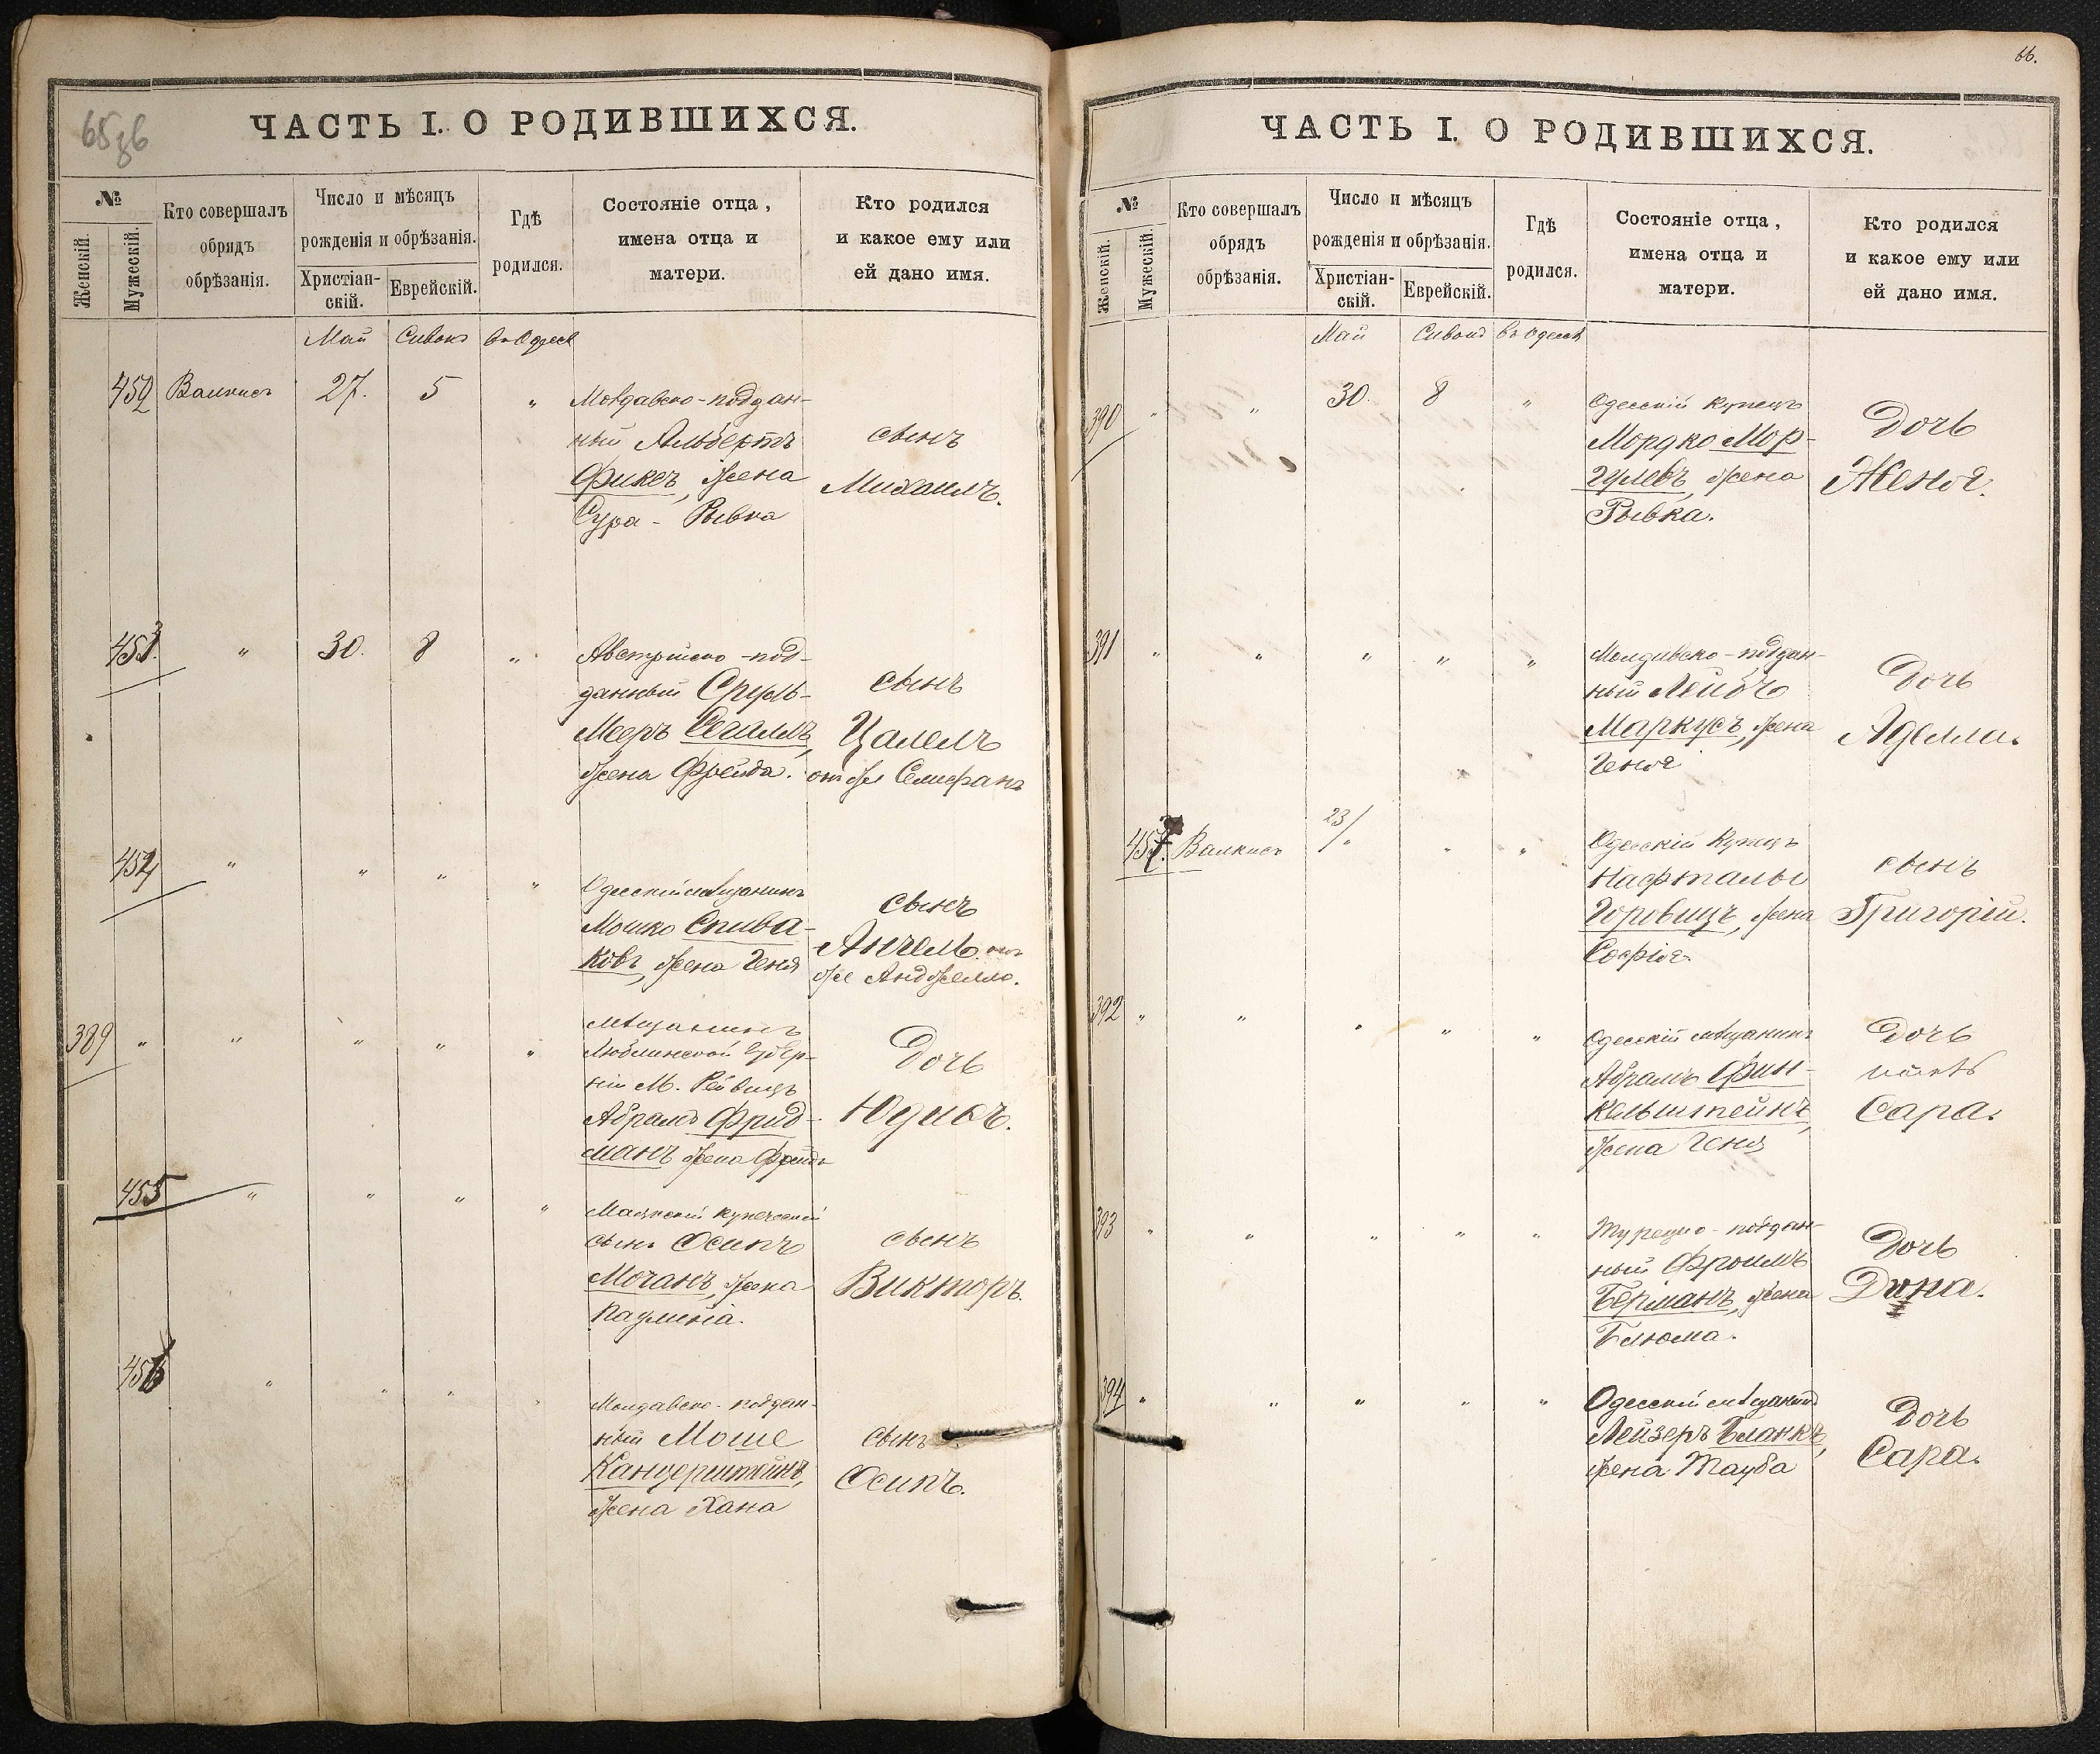 65зв
ЧАСТЬ I. О РОДИВШИХСЯ.
№
Женскій.
Мужескій.
Кто совершалъ
обрядъ
обрѣзанія.
Число и мѣсяцъ
рожденія и обрѣзанія.
Христіан-
скій.
Еврейскій.
Гдѣ
родился.
Состояніе отца,
имена отца и
матери.
Кто родился
и какое ему или
ей дано имя.
Май Сивонъ въ Одессѣ
452 Валкисъ 27. 5 "
Молдавско-поддан-
ный Альбертъ
Фиксъ, жена
Сура - Рывка
сынъ
Михаилъ.
453. " 30. 8 "
Австрійско-под-
данный Сруль-
Мееръ Сегалъ,
жена Фрейда.
сынъ
Цалелъ
онъ же Селифанъ
454 " " " "
Одесскій мѣщанинъ
Мошко Спива-
ковъ, жена Геня
сынъ
Ангель онъ
же Анджелло.
389 " " " " "
Мѣщанинъ
Люблинской Губер-
ніи М.
Абрамъ Фрид-
манъ жена Фрейда
Дочь
Юдисъ.
455 " " " "
Маякскій купеческій
сынъ Осипъ
Моганъ, жена
сынъ
Викторъ.
456 " " " "
Молдавско-поддан-
ный Моше
Канцерштейнъ,
жена Хана
сынъ
Осипъ.
66.
ЧАСТЬ I. О РОДИВШИХСЯ.
№
Женскій.
Мужескій.
Кто совершалъ
обрядъ
обрѣзанія.
Число и мѣсяцъ
рожденія и обрѣзанія.
Христіан-
скій.
Еврейскій.
Гдѣ
родился.
Состояніе отца,
имена отца и
матери.
Кто родился
и какое ему или
ей дано имя.
Май Сивонъ въ Одессѣ
390 " " 30. 8 "
Одесскій купецъ
Мордко Мор-
гулевъ, жена
Рывка.
Дочь
Женя.
391 " " " " "
Молдавско-поддан-
ный Лейбъ
Маркусъ, жена
Геня
Дочь
Аделли.
457. Валкисъ 23/" " "
Одесскій Купецъ
Нафталы
Горовицъ, жена
Софія.
сынъ
Григорій.
392 " " " " "
Одесскій мѣщанинъ
Абрамъ Фин-
кельштейнъ,
жена Геня
Дочь
Сара.
393 " " " " "
Турецко-поддан-
ный Фроимъ
Берманъ, жена
Блюма.
Дочь
Дина.
394 " " " " "
Одесскій мѣщанинъ
Лейзеръ Бланкъ,
жена Тауба
Дочь
Сара.